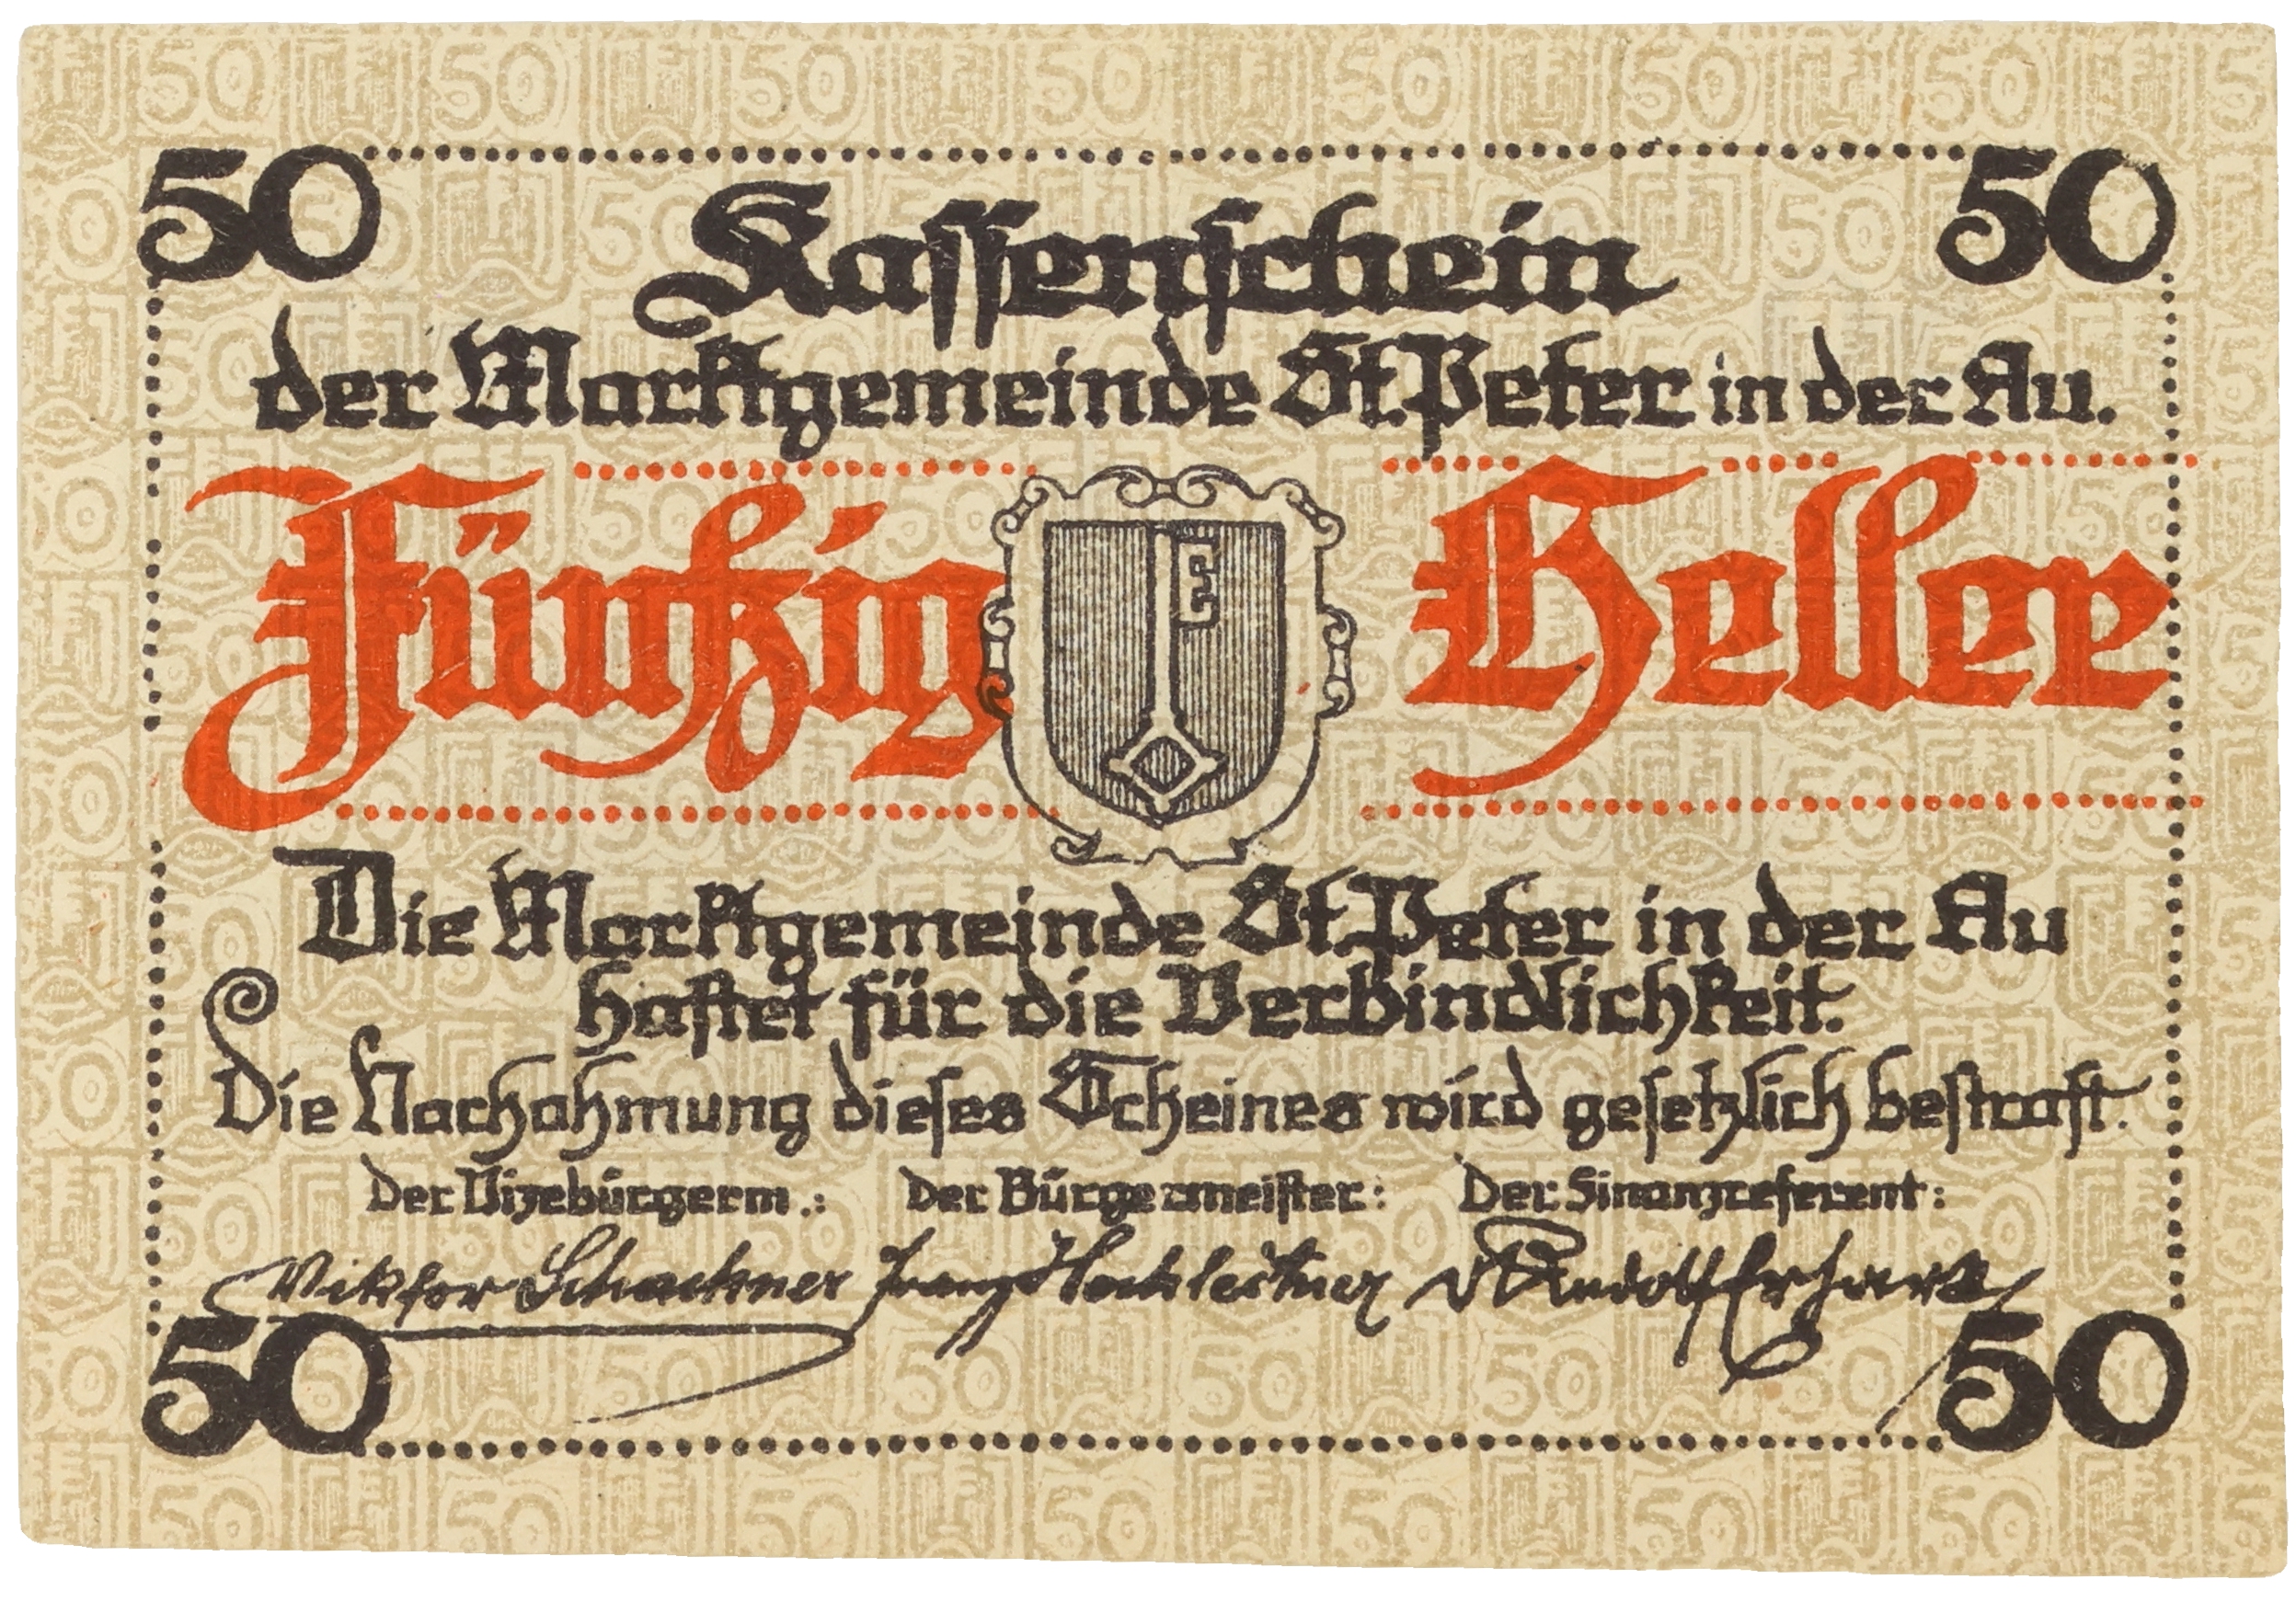 50 50
Kassenschein
der Marktgemeinde St. Peter in der Au.
Fünfzig Heller
Die Marktgemeinde St. Peter in der Au
haftet für die Verbindlichkeit.
Die Nachahmung dieses Scheines wird gesetzlich bestraft.
Der Vizebürgerm.: Der Bürgermeister: Der Finanzreferent:
Viktor Schachner Franz Hochleitner Rudolf
50 50